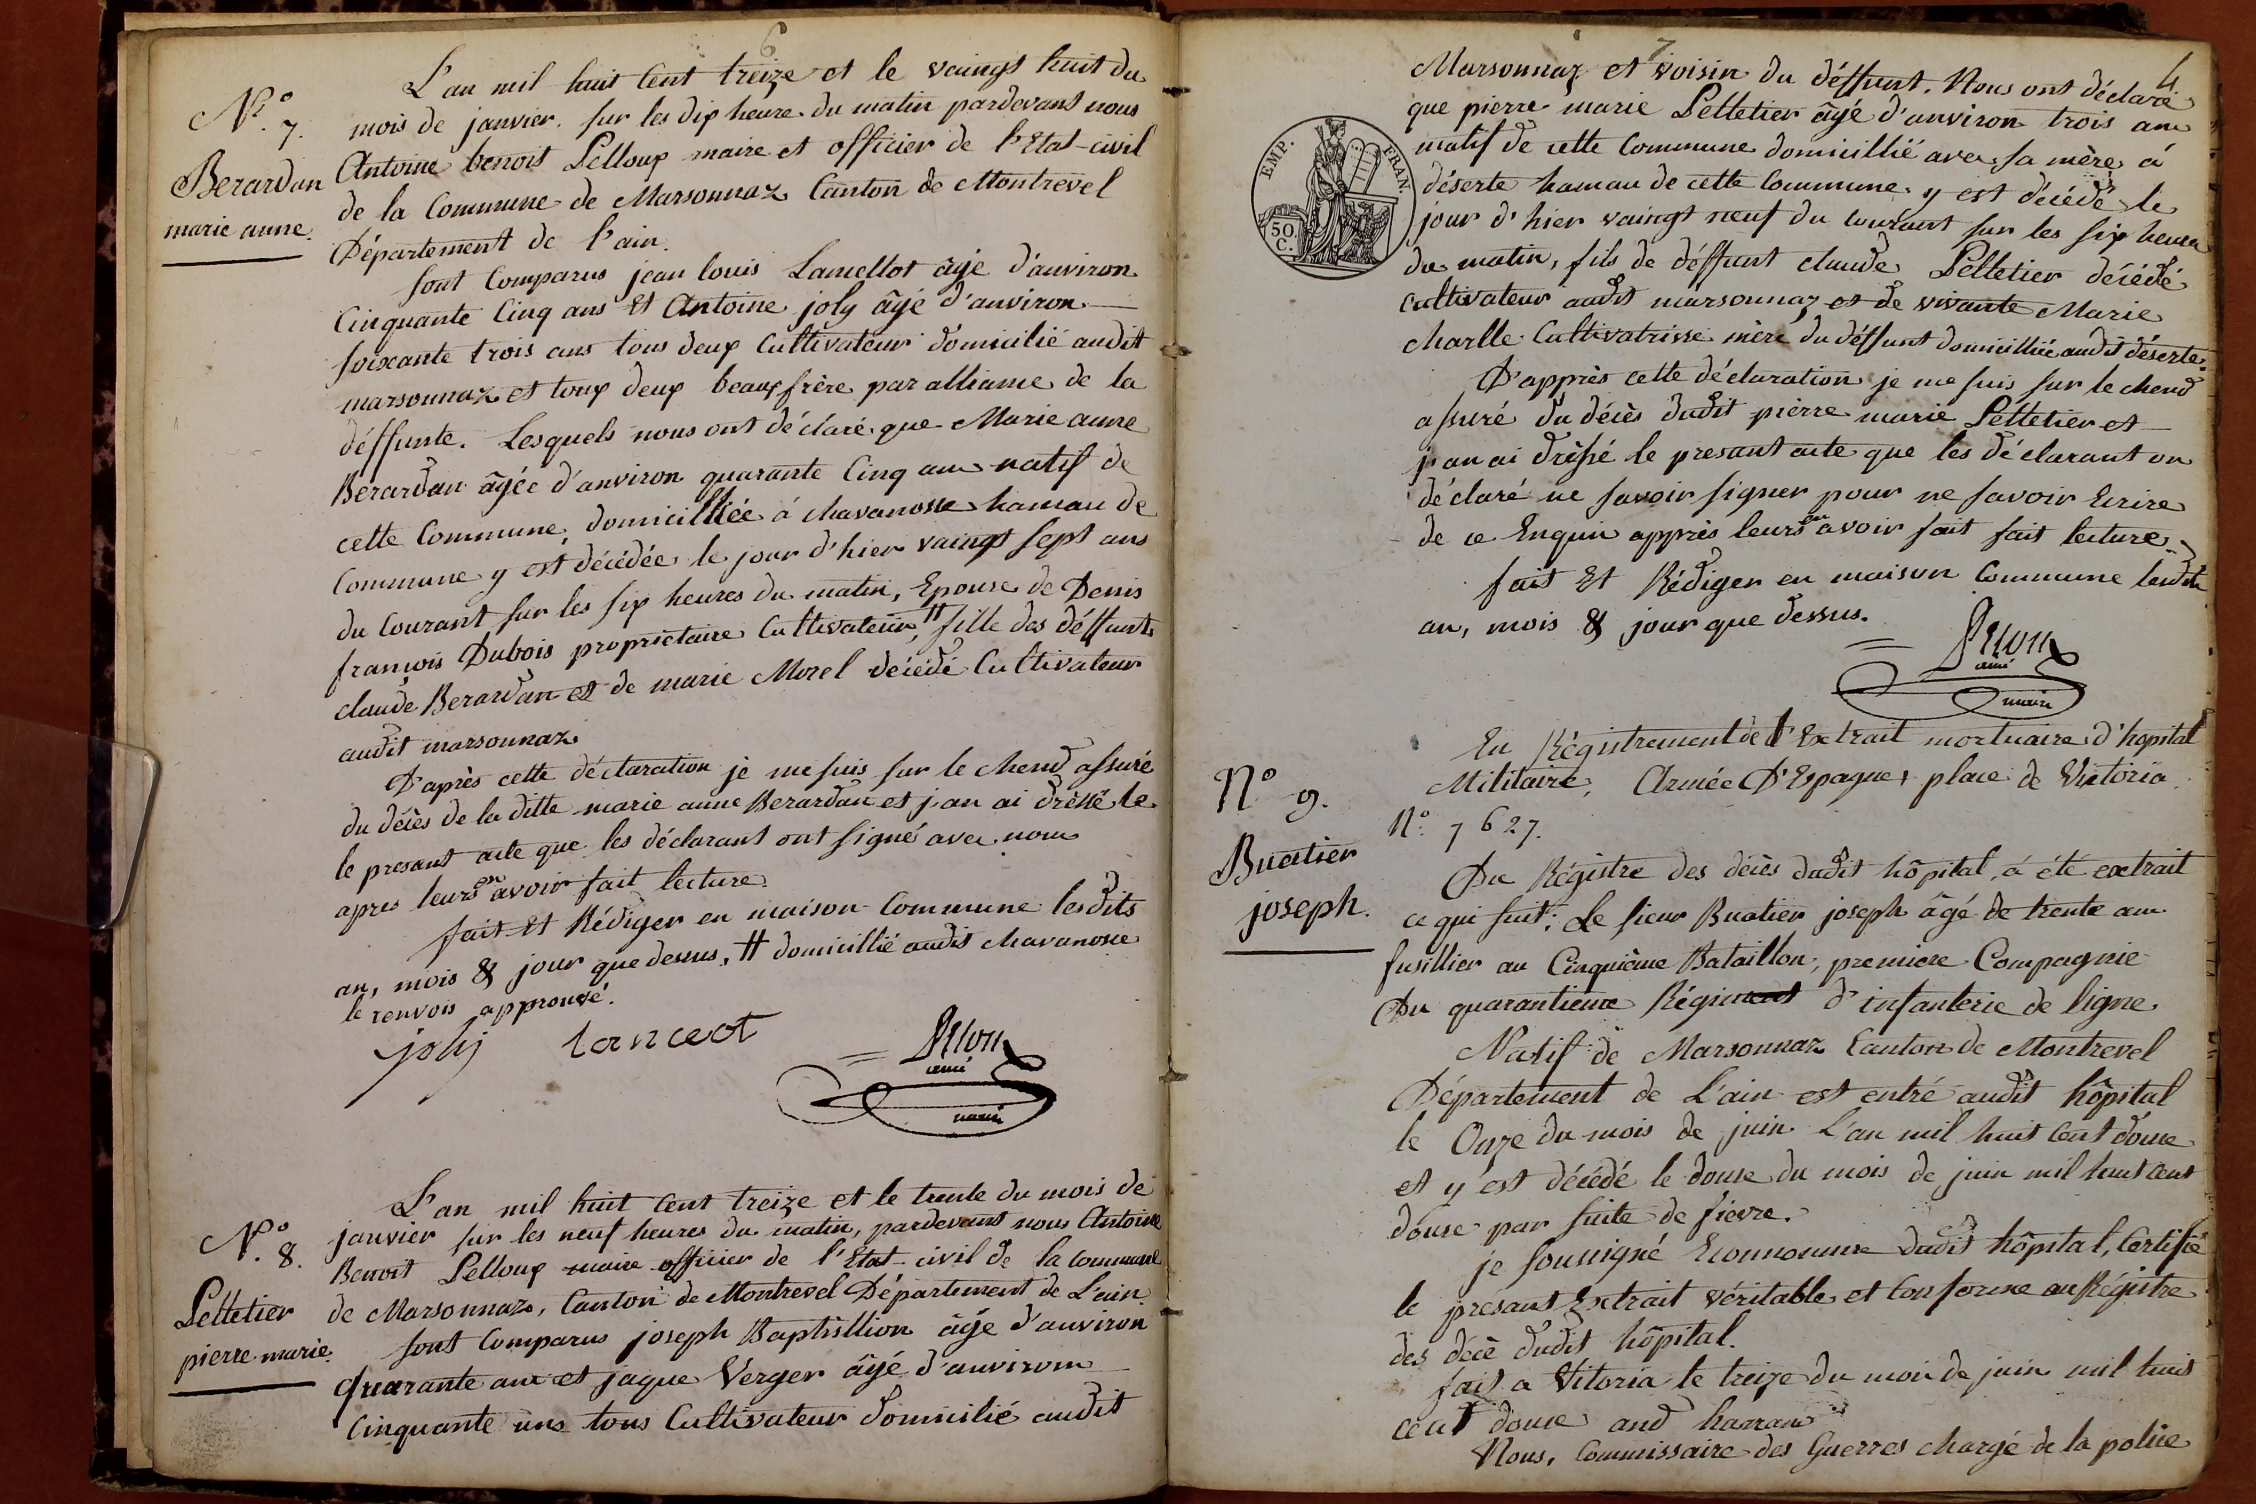 6
N.° 7.
Berardan
marie anne.
L'an mil huit Cent treize et le vaingt huit du
mois de janvier. sur les dix heure du matin pardevant nous
Antoine benoit Pelloux maire et officier de l'Etat-civil
de la Commune de Marsonnaz Canton de Montrevel
Département de l'ain.
sont Comparus jean louis Lamellot âgé d'anviron
Cinquante Cinq ans Et Antoine joly âgé d'anviron
soixante trois ans tous deux Cultivateur domicilié audit
marsonnaz et toux deux beaux frère par alliance de la
déffunte. Lesquels nous ont déclaré que Marie anne
Berardan âgée d'anviron quarante Cinq ans natif de
cette Commune, domicilliée á chavanosse hamau de
Commune y est décédée le jour d'hier vaingt sept ans
du Courant sur les six heures du matin, Epouse de Denis
françois Dubois proprietaire Cultivateur, # fille des déffunts
claude Berardan et de marie Morel décédé Cultivateur
audit marsonnaz
D'après cette déclaration je me suis sur le chend assuré
du décès de la ditte marie anne Berardan et j'an ai drèssé le
le presant acte que les déclarant ont signé avec nous
apres leurs en avoir fait lecture.
fait Et Rédiger en maison Commune lesdits
an, mois & jour que dessus, # domicillié audit chavanosse
le renvois approuvé.
joly lanceot
maire
N.° 8.
Pelletier
pierre marie.
L'an mil huit Cent treize et le trente du mois de
janvier sur les neuf heures du matin, pardevant nous Antoine
Benoit Pelloux maire officier de l'Etat-civil de la Commune
de Marsonnaz, Canton de Montrevel Département de L'ain.
sont Comparus joseph Baptisllion âgé d'anviron
quarante ans et jaque Verger âgé d'anviron
Cinquante ans tous Cultivateur domicilié audit
7
4
EMP. FRAN.
50. C.
Marsonnaz et voisin du déffunt. Nous ont déclaré
que pierre marie Pelletier âgé d'anviron trois ans
matif de cette Commune domicillié avec sa mère á
déserte hamau de cette Commune. y est décédé le
jour d'hier vaingt neuf du Courant sur les six heures
du matin, fils de déffunt claude Pelletier décédé
cultivateur audit marsonnaz et de vivante Marie
charlle Cultivatrisse mère du déffunt domicilliée audit déserte.
D'apprès cette déclaration je me suis sur le chend
assuré du décès dudit pièrre marie Pelletier et
j'an ai drèssé le presant acte que les déclarant on
déclaré ne savoir signer pour ne savoir Ecrire
de ce Enquis apprès leurs en avoir fait fait lecture
fait Et Rédiger en maison Commune lesdits
an, mois & jour que dessus.
maire
N° 9.
Buatier
joseph.
En Régistrement de l'Extrait mortuaire d'hopital
Militaire, Armée D'Espagne, place de Victoria
N° 7627.
Du Régistre des décès dudit hôpital, á été extrait
ce qui suit; Le sieur Buatier joseph âgé de trente ans
fusillier au Cinquième Bataillon, premiere Compagnie
Du quarantieme Régiment d'infanterie de ligne
Natif de Marsonnaz Canton de Montrevel
Département de L'ain est entré audit hôpital
le Onze du mois de juin L'an mil huit Cent douse
et y est décédé le douse du mois de juin mil huit cent
douse par suite de fièvre.
je soussigné Econnomme dudit hôpital, Certifié
le présant Extrait véritable et Conforme au Régistre
des décè dudit hôpital.
fait a Vitoria le treize du moi de juin mil huit
cent douse and harran
Nous, Commissaire des Guerres chargé de la police